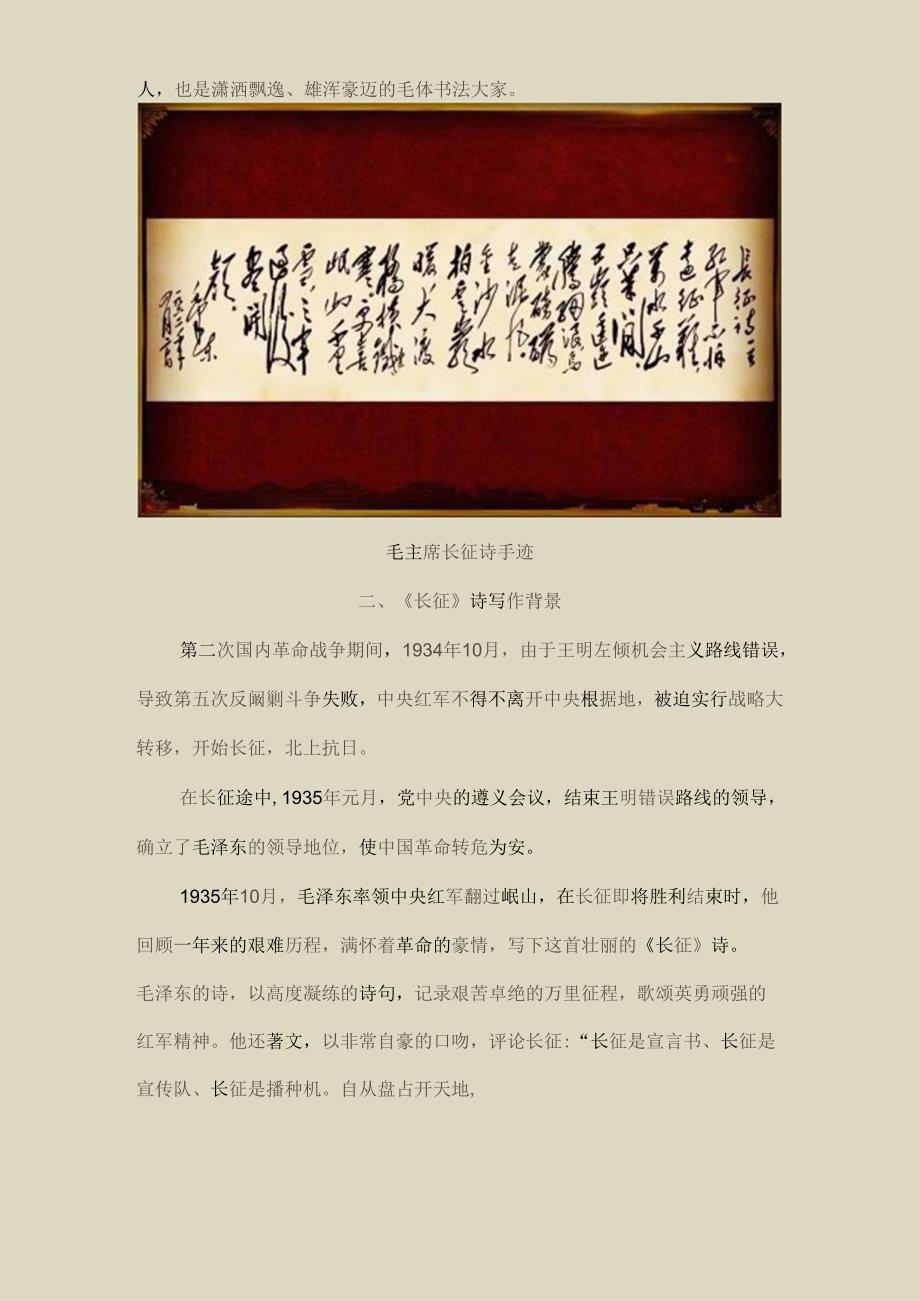 人，也是潇洒飘逸、雄浑豪迈的毛体书法大家。
長征詩一首
紅軍不怕
遠征難
萬水千山
只等閒
五嶺逶迤
騰細浪烏
蒙磅礴
走泥丸
金沙水
拍雲崖
暖大渡
橋橫鐵索
寒。更喜
岷山千里
雪，三軍
過後
盡開
顏。
毛澤東
毛主席长征诗手迹
二、《长征》诗写作背景
第二次国内革命战争期间，1934年10月，由于王明左倾机会主义路线错误，
导致第五次反阚剿斗争失败，中央红军不得不离开中央根据地，被迫实行战略大
转移，开始长征，北上抗日。
在长征途中,1935年元月，党中央的遵义会议，结束王明错误路线的领导，
确立了毛泽东的领导地位，使中国革命转危为安。
1935年10月，毛泽东率领中央红军翻过岷山，在长征即将胜利结束时，他
回顾一年来的艰难历程，满怀着革命的豪情，写下这首壮丽的《长征》诗。
毛泽东的诗，以高度凝练的诗句，记录艰苦卓绝的万里征程，歌颂英勇顽强的
红军精神。他还著文，以非常自豪的口吻，评论长征:“长征是宣言书、长征是
宣传队、长征是播种机。自从盘占开天地,